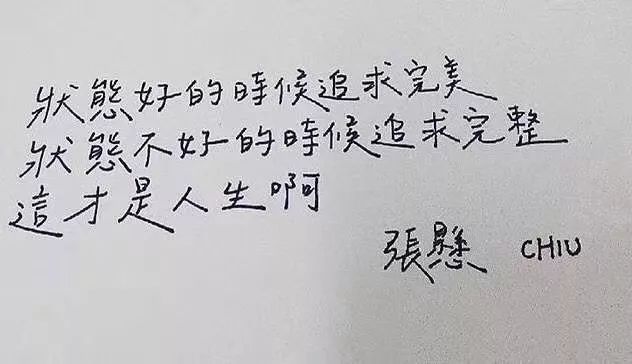 狀態好的時候追求完美
狀態不好的時候追求完整
這才是人生啊
張懸 CHIU